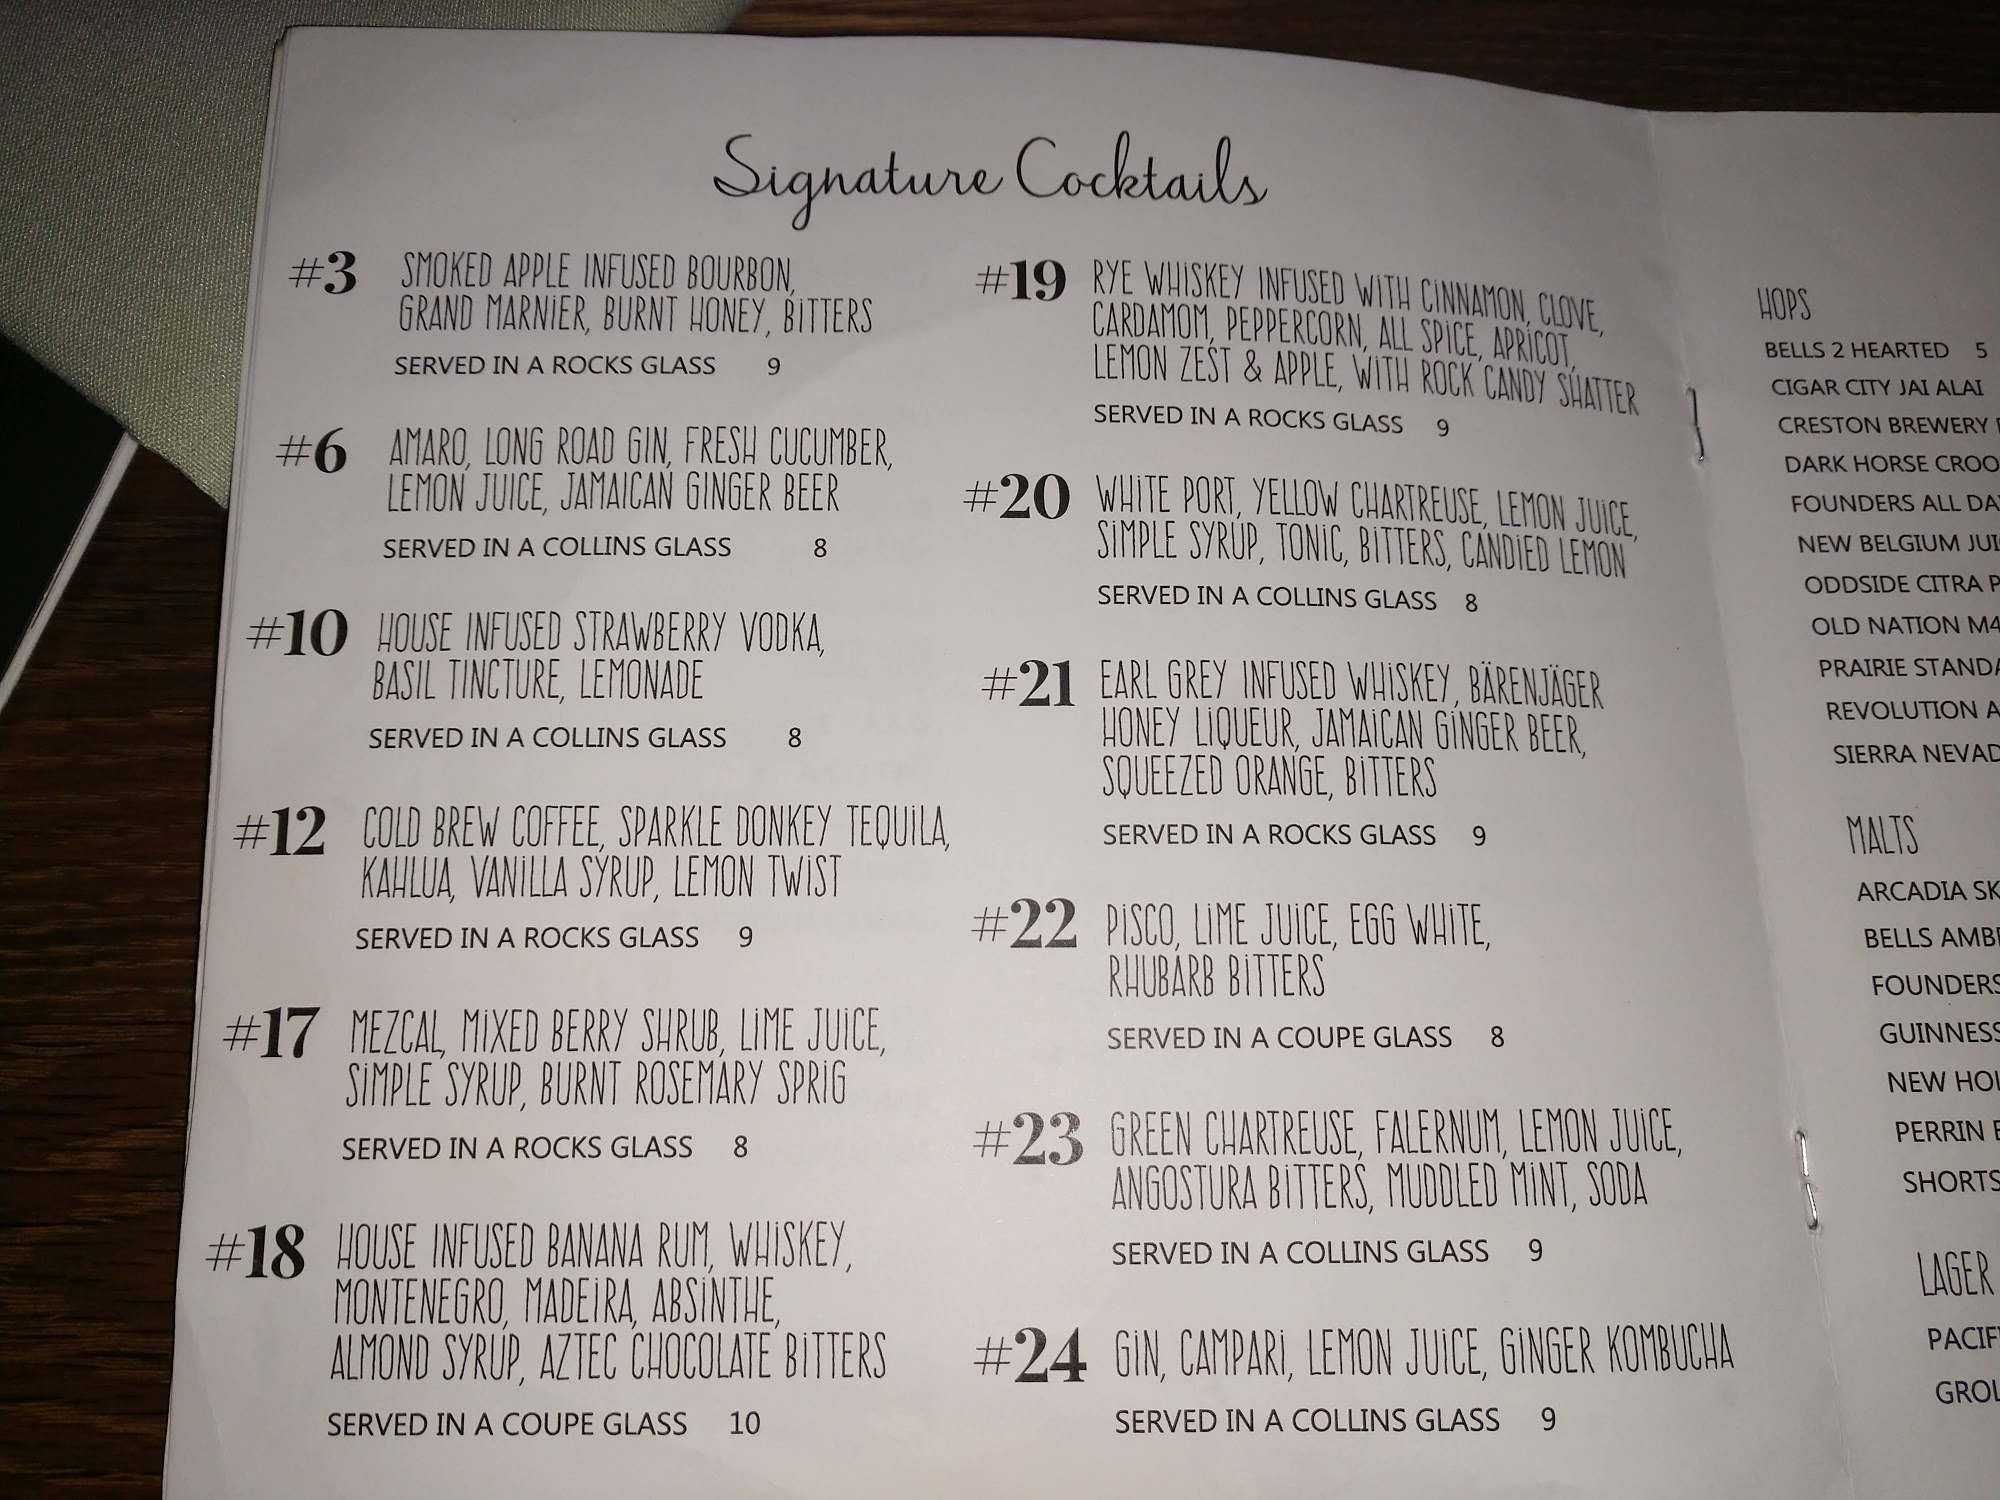 Signature Cocktails
#3 SMOKED APPLE INFUSED BOURBON,
GRAND MARNIER, BURNT HONEY, BITTERS
SERVED IN A ROCKS GLASS 9
#6 AMARO, LONG ROAD GIN, FRESH CUCUMBER,
LEMON JUICE, JAMAICAN GINGER BEER
SERVED IN A COLLINS GLASS 8
#10 HOUSE INFUSED STRAWBERRY VODKA,
BASIL TINCTURE, LEMONADE
SERVED IN A COLLINS GLASS 8
#12 COLD BREW COFFEE, SPARKLE DONKEY TEQUILA,
KAHLUA, VANILLA SYRUP, LEMON TWIST
SERVED IN A ROCKS GLASS 9
#17 MEZCAL, MIXED BERRY SHRUB, LIME JUICE,
SIMPLE SYRUP, BURNT ROSEMARY SPRIG
SERVED IN A ROCKS GLASS 8
#18 HOUSE INFUSED BANANA RUM, WHISKEY,
MONTENEGRO, MADEIRA, ABSINTHE,
ALMOND SYRUP, AZTEC CHOCOLATE BITTERS
SERVED IN A COUPE GLASS 10
#19 RYE WHISKEY INFUSED WITH CINNAMON, CLOVE,
CARDAMOM, PEPPERCORN, ALL SPICE, APRICOT,
LEMON ZEST & APPLE, WITH ROCK CANDY SHATTER
SERVED IN A ROCKS GLASS 9
#20 WHITE PORT, YELLOW CHARTREUSE, LEMON JUICE,
SIMPLE SYRUP, TONIC, BITTERS, CANDIED LEMON
SERVED IN A COLLINS GLASS 8
#21 EARL GREY INFUSED WHISKEY, BÄRENJÄGER
HONEY LIQUEUR, JAMAICAN GINGER BEER,
SQUEEZED ORANGE, BITTERS
SERVED IN A ROCKS GLASS 9
#22 PISCO, LIME JUICE, EGG WHITE,
RHUBARB BITTERS
SERVED IN A COUPE GLASS 8
#23 GREEN CHARTREUSE, FALERNUM, LEMON JUICE,
ANGOSTURA BITTERS, MUDDLED MINT, SODA
SERVED IN A COLLINS GLASS 9
#24 GIN, CAMPARI, LEMON JUICE, GINGER KOMBUCHA
SERVED IN A COLLINS GLASS 9
HOPS
BELLS 2 HEARTED 5
CIGAR CITY JAI ALAI
CRESTON BREWERY
DARK HORSE CROO
FOUNDERS ALL DA
NEW BELGIUM JUI
ODDSIDE CITRA P
OLD NATION M4
PRAIRIE STANDA
REVOLUTION A
SIERRA NEVAD
MALTS
ARCADIA SK
BELLS AMB
FOUNDERS
GUINNESS
NEW HO
PERRIN
SHORTS
LAGER
PACIF
GROL